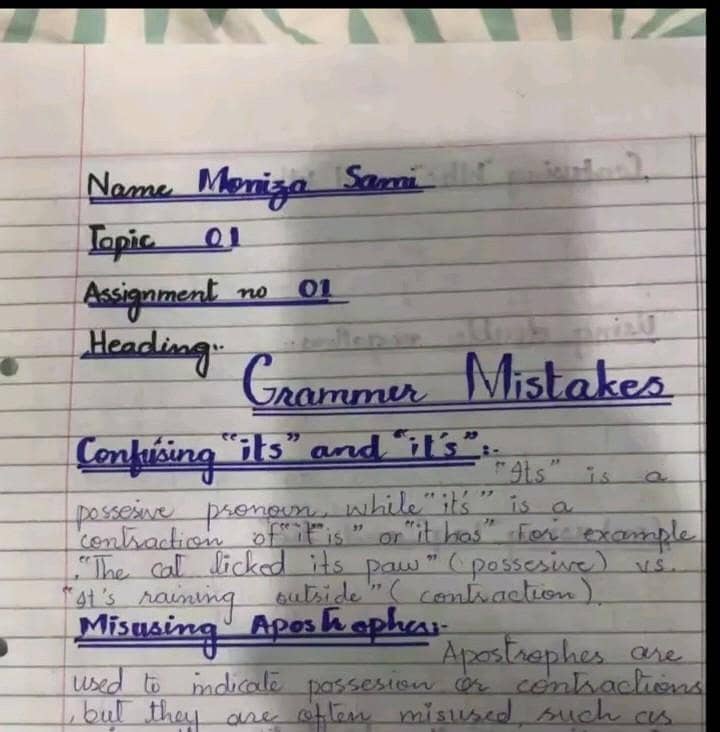 Name Moniza Sami
Topic 01
Assignment no 01
Heading:-
Grammer Mistakes
Confusing "its" and "it's":-
"Its" is a
possesive pronoun, while "it's" is a
contraction of "it is" or "it has". For example
. "The cat licked its paw" (possesive) vs.
"It's raining outside" (contraction).
Misusing Apostrophes:-
Apostrophes are
used to indicate possesion or contractions
, but they are often misused, such as